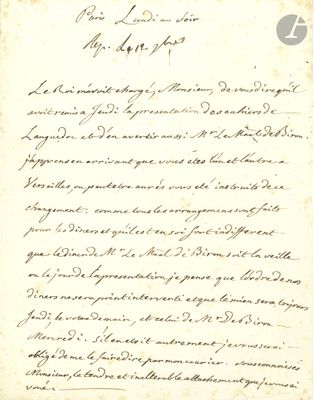 Paris Lundi au Soir
Rep. Le 12 9bre
Le Roi m'avoit chargé, Monsieur, de vous dire qu'il
avoit remis a Jeudi la presentation des cahiers de
Languedoc et d'en avertir aussi Mr. Le Maal de Biron.
j'apprens en arrivant que vous étes lun et lautre a
Versailles, ou peut etre aurés vous eté instruits de ce
changement. comme tous les arrangemens sont faits
pour les diners et qu'il est en soi fort indifferent
que le diner de Mr. Le Maal de Biron soit la veille
ou le jour de la presentation, je pense que l'ordre de nos
diners ne sera point interverti et que le mien sera toujours
Jeudi, le votre demain, et celui de Mr. De Biron
Mercredi. S'il en etoit autrement je vous serai
obligé de me le faire dire par mon courier. vous connoissés
Monsieur, le tendre et inalterable attachement que je vous ai
voué.